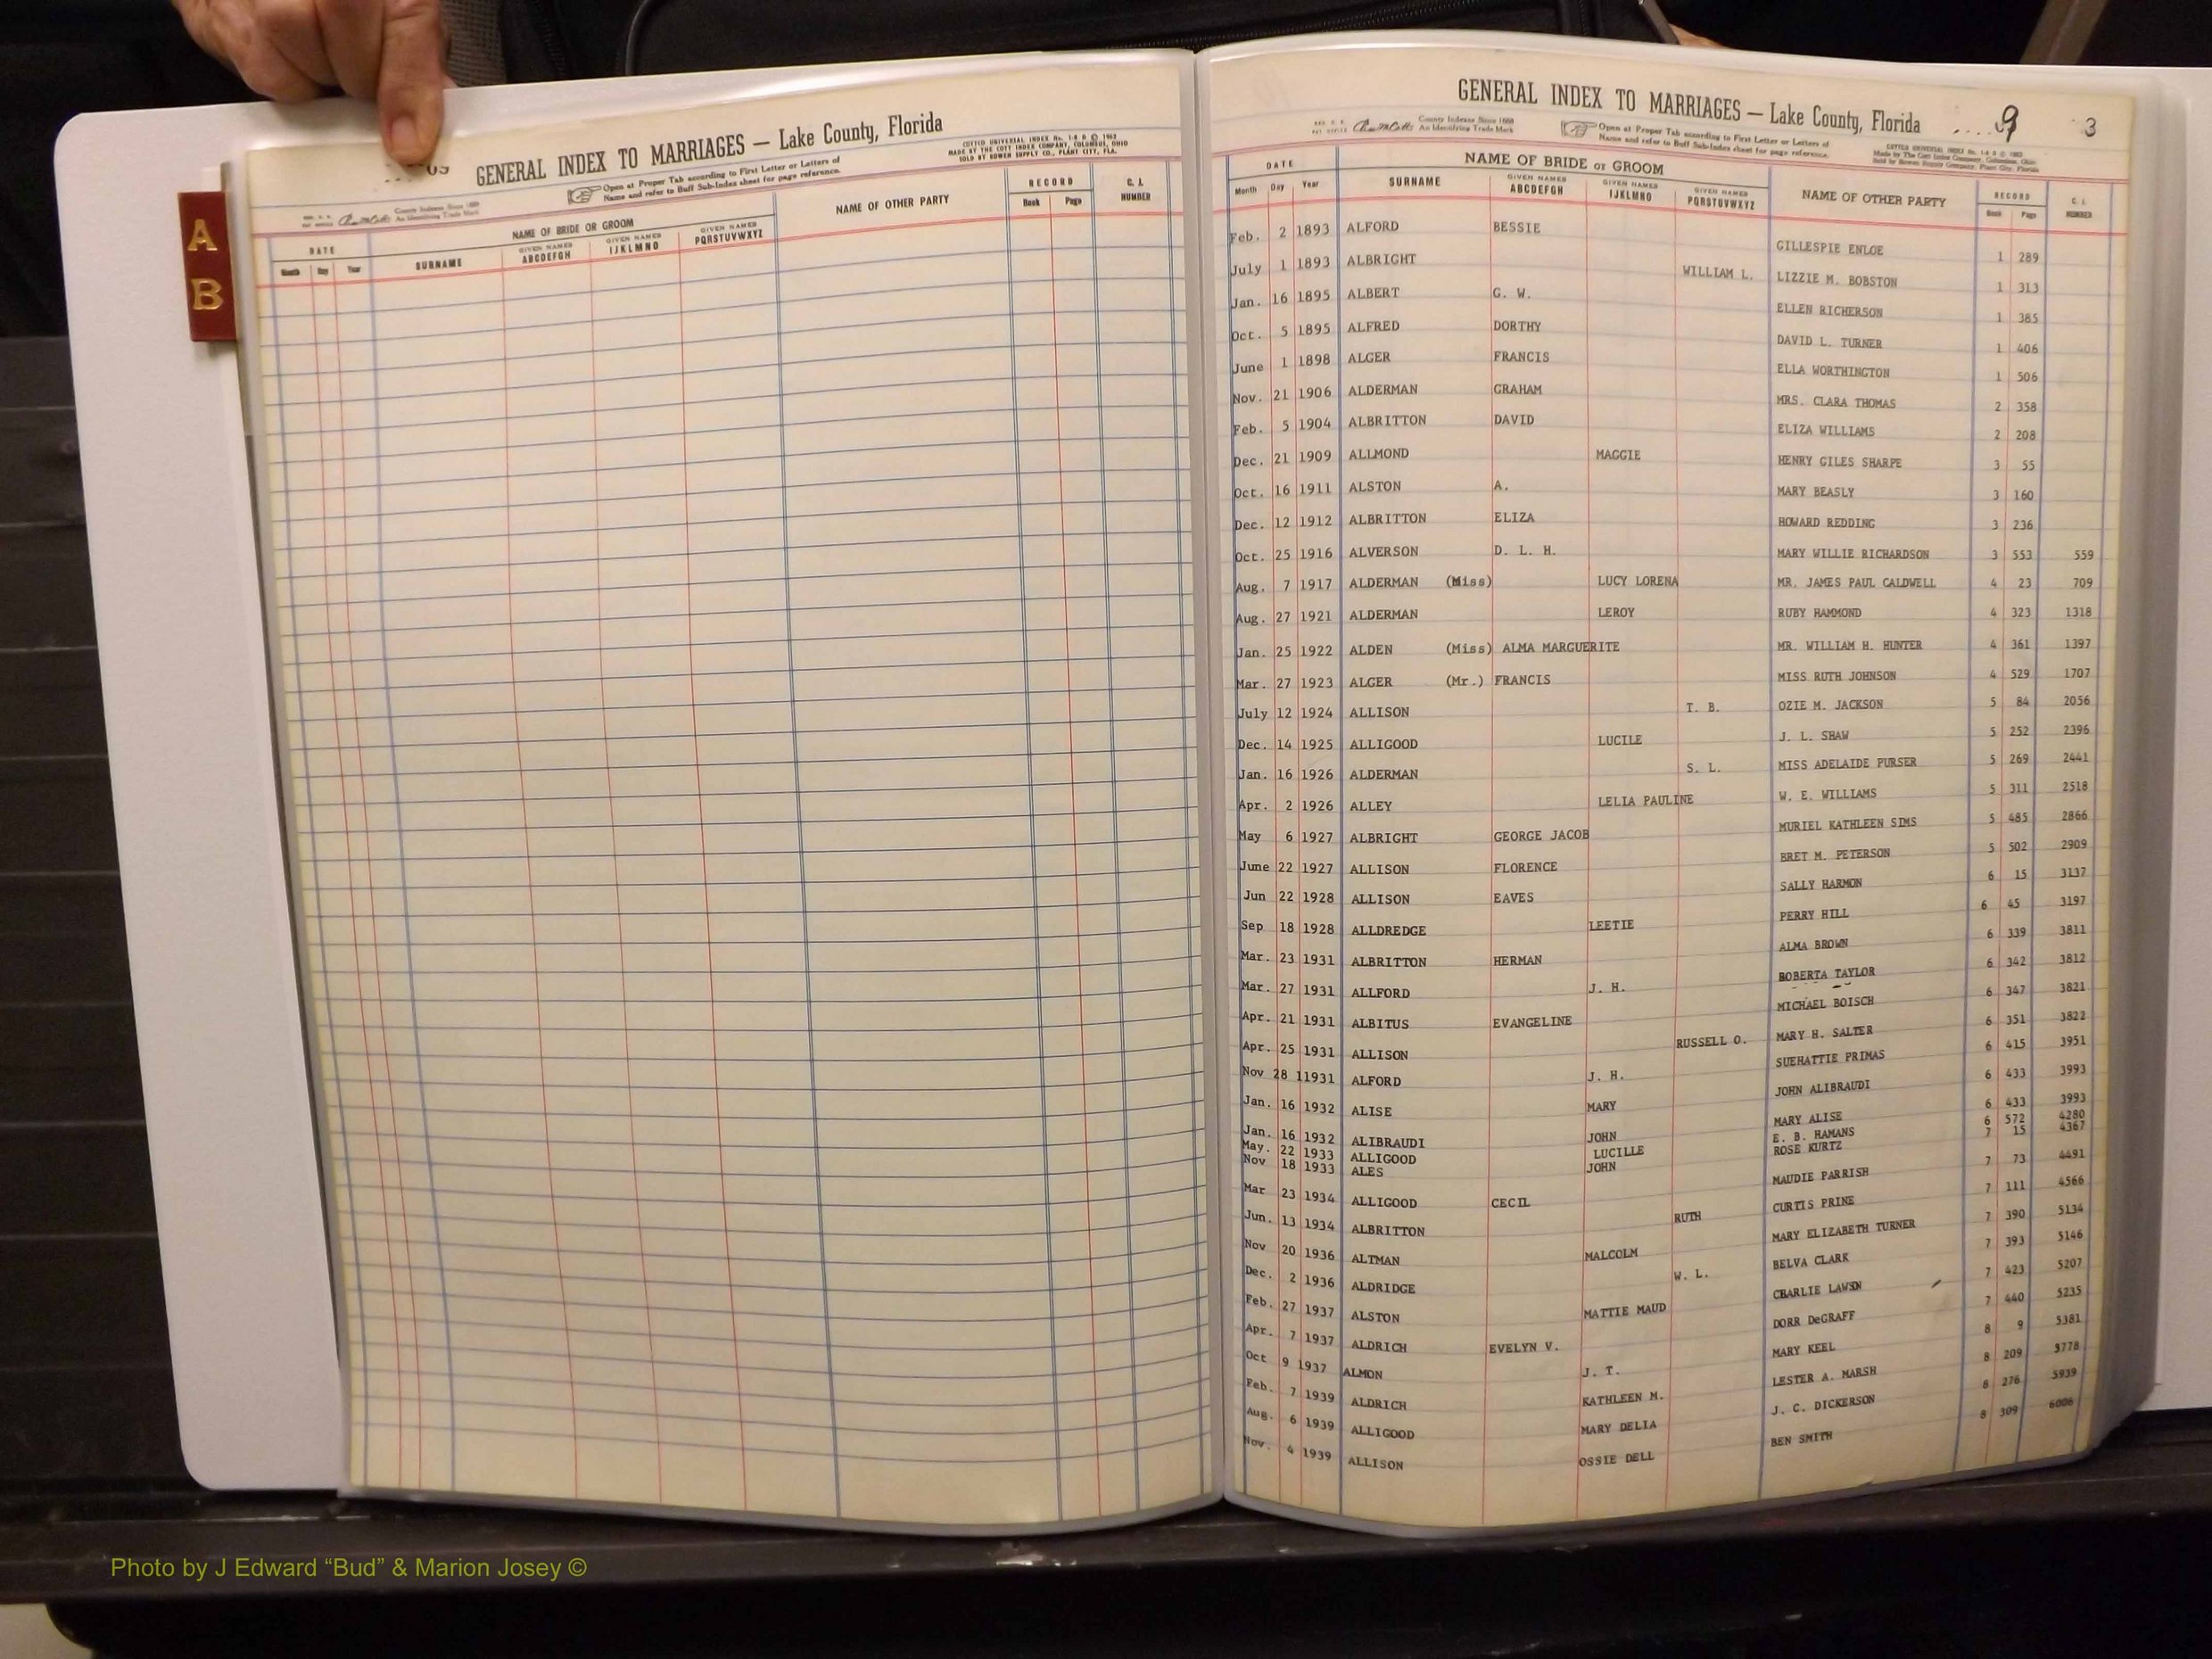 A
B
09 GENERAL INDEX TO MARRIAGES — Lake County, Florida
County Indexes Since 1888
An Identifying Trade Mark
Open at Proper Tab according to First Letter or Letters of
Name and refer to Buff Sub-Index sheet for page reference.
COTTCO UNIVERSAL INDEX No.
MADE BY THE COTT INDEX COMPANY, COLUMBUS, OHIO
SOLD BY BOWEN SUPPLY CO., PLANT CITY, FLA.
DATE NAME OF BRIDE OR GROOM NAME OF OTHER PARTY RECORD C. I. NUMBER
Month Day Year SURNAME GIVEN NAMES ABCDEFGH GIVEN NAMES IJKLMNO GIVEN NAMES PQRSTUVWXYZ Book Page
GENERAL INDEX TO MARRIAGES — Lake County, Florida 9 3
County Indexes Since 1888
An Identifying Trade Mark
Open at Proper Tab according to First Letter or Letters of
Name and refer to Buff Sub-Index sheet for page reference.
Made by The Cott Index Company, Columbus, Ohio
Sold by Bowen Supply Company, Plant City, Florida
DATE NAME OF BRIDE or GROOM NAME OF OTHER PARTY RECORD C. I. NUMBER
Month Day Year SURNAME GIVEN NAMES ABCDEFGH GIVEN NAMES IJKLMNO GIVEN NAMES PQRSTUVWXYZ Book Page
Feb. 2 1893 ALFORD BESSIE GILLESPIE ENLOE 1 289
July 1 1893 ALBRIGHT WILLIAM L. LIZZIE M. BOBSTON 1 313
Jan. 16 1895 ALBERT G. W. ELLEN RICHERSON 1 385
Oct. 5 1895 ALFRED DORTHY DAVID L. TURNER 1 406
June 1 1898 ALGER FRANCIS ELLA WORTHINGTON 1 506
Nov. 21 1906 ALDERMAN GRAHAM MRS. CLARA THOMAS 2 358
Feb. 5 1904 ALBRITTON DAVID ELIZA WILLIAMS 2 208
Dec. 21 1909 ALLMOND MAGGIE HENRY GILES SHARPE 3 55
Oct. 16 1911 ALSTON A. MARY BEASLY 3 160
Dec. 12 1912 ALBRITTON ELIZA HOWARD REDDING 3 236
Oct. 25 1916 ALVERSON D. L. H. MARY WILLIE RICHARDSON 3 553 559
Aug. 7 1917 ALDERMAN (Miss) LUCY LORENA MR. JAMES PAUL CALDWELL 4 23 709
Aug. 27 1921 ALDERMAN LEROY RUBY HAMMOND 4 323 1318
Jan. 25 1922 ALDEN (Miss) ALMA MARGUERITE MR. WILLIAM H. HUNTER 4 361 1397
Mar. 27 1923 ALGER (Mr.) FRANCIS MISS RUTH JOHNSON 4 529 1707
July 12 1924 ALLISON T. B. OZIE M. JACKSON 5 84 2056
Dec. 14 1925 ALLIGOOD LUCILE J. L. SHAW 5 252 2396
Jan. 16 1926 ALDERMAN S. L. MISS ADELAIDE PURSER 5 269 2441
Apr. 2 1926 ALLEY LELIA PAULINE W. E. WILLIAMS 5 311 2518
May 6 1927 ALBRIGHT GEORGE JACOB MURIEL KATHLEEN SIMS 5 485 2866
June 22 1927 ALLISON FLORENCE BRET M. PETERSON 5 502 2909
Jun 22 1928 ALLISON EAVES SALLY HARMON 6 15 3137
Sep 18 1928 ALLDREDGE LEETIE PERRY HILL 6 45 3197
Mar. 23 1931 ALBRITTON HERMAN ALMA BROWN 6 339 3811
Mar. 27 1931 ALLFORD J. H. ROBERTA TAYLOR 6 342 3812
Apr. 21 1931 ALBITUS EVANGELINE MICHAEL BOISCH 6 347 3821
Apr. 25 1931 ALLISON RUSSELL O. MARY H. SALTER 6 351 3822
Nov 28 11931 ALFORD J. H. SUEHATTIE PRIMAS 6 415 3951
Jan. 16 1932 ALISE MARY JOHN ALIBRAUDI 6 433 3993
Jan. 16 1932 ALIBRAUDI JOHN MARY ALISE 6 433 3993
May. 22 1933 ALLIGOOD LUCILLE E. B. HAMANS 6 572 4280
Nov 18 1933 ALES JOHN ROSE KURTZ 7 15 4367
Mar 23 1934 ALLIGOOD CECIL MAUDIE PARRISH 7 73 4491
Jun. 13 1934 ALBRITTON RUTH CURTIS PRINE 7 111 4566
Nov 20 1936 ALTMAN MALCOLM MARY ELIZABETH TURNER 7 390 5134
Dec. 2 1936 ALDRIDGE W. L. BELVA CLARK 7 393 5146
Feb. 27 1937 ALSTON MATTIE MAUD CHARLIE LAWSON 7 423 5207
Apr. 7 1937 ALDRICH EVELYN V. DORR DeGRAFF 7 440 5235
Oct 9 1937 ALMON J. T. MARY KEEL 8 9 5381
Feb. 7 1939 ALDRICH KATHLEEN M. LESTER A. MARSH 8 209 5778
Aug. 6 1939 ALLIGOOD MARY DELIA J. C. DICKERSON 8 276 5939
Nov. 4 1939 ALLISON OSSIE DELL BEN SMITH 8 309 6006
Photo by J Edward “Bud” & Marion Josey ©